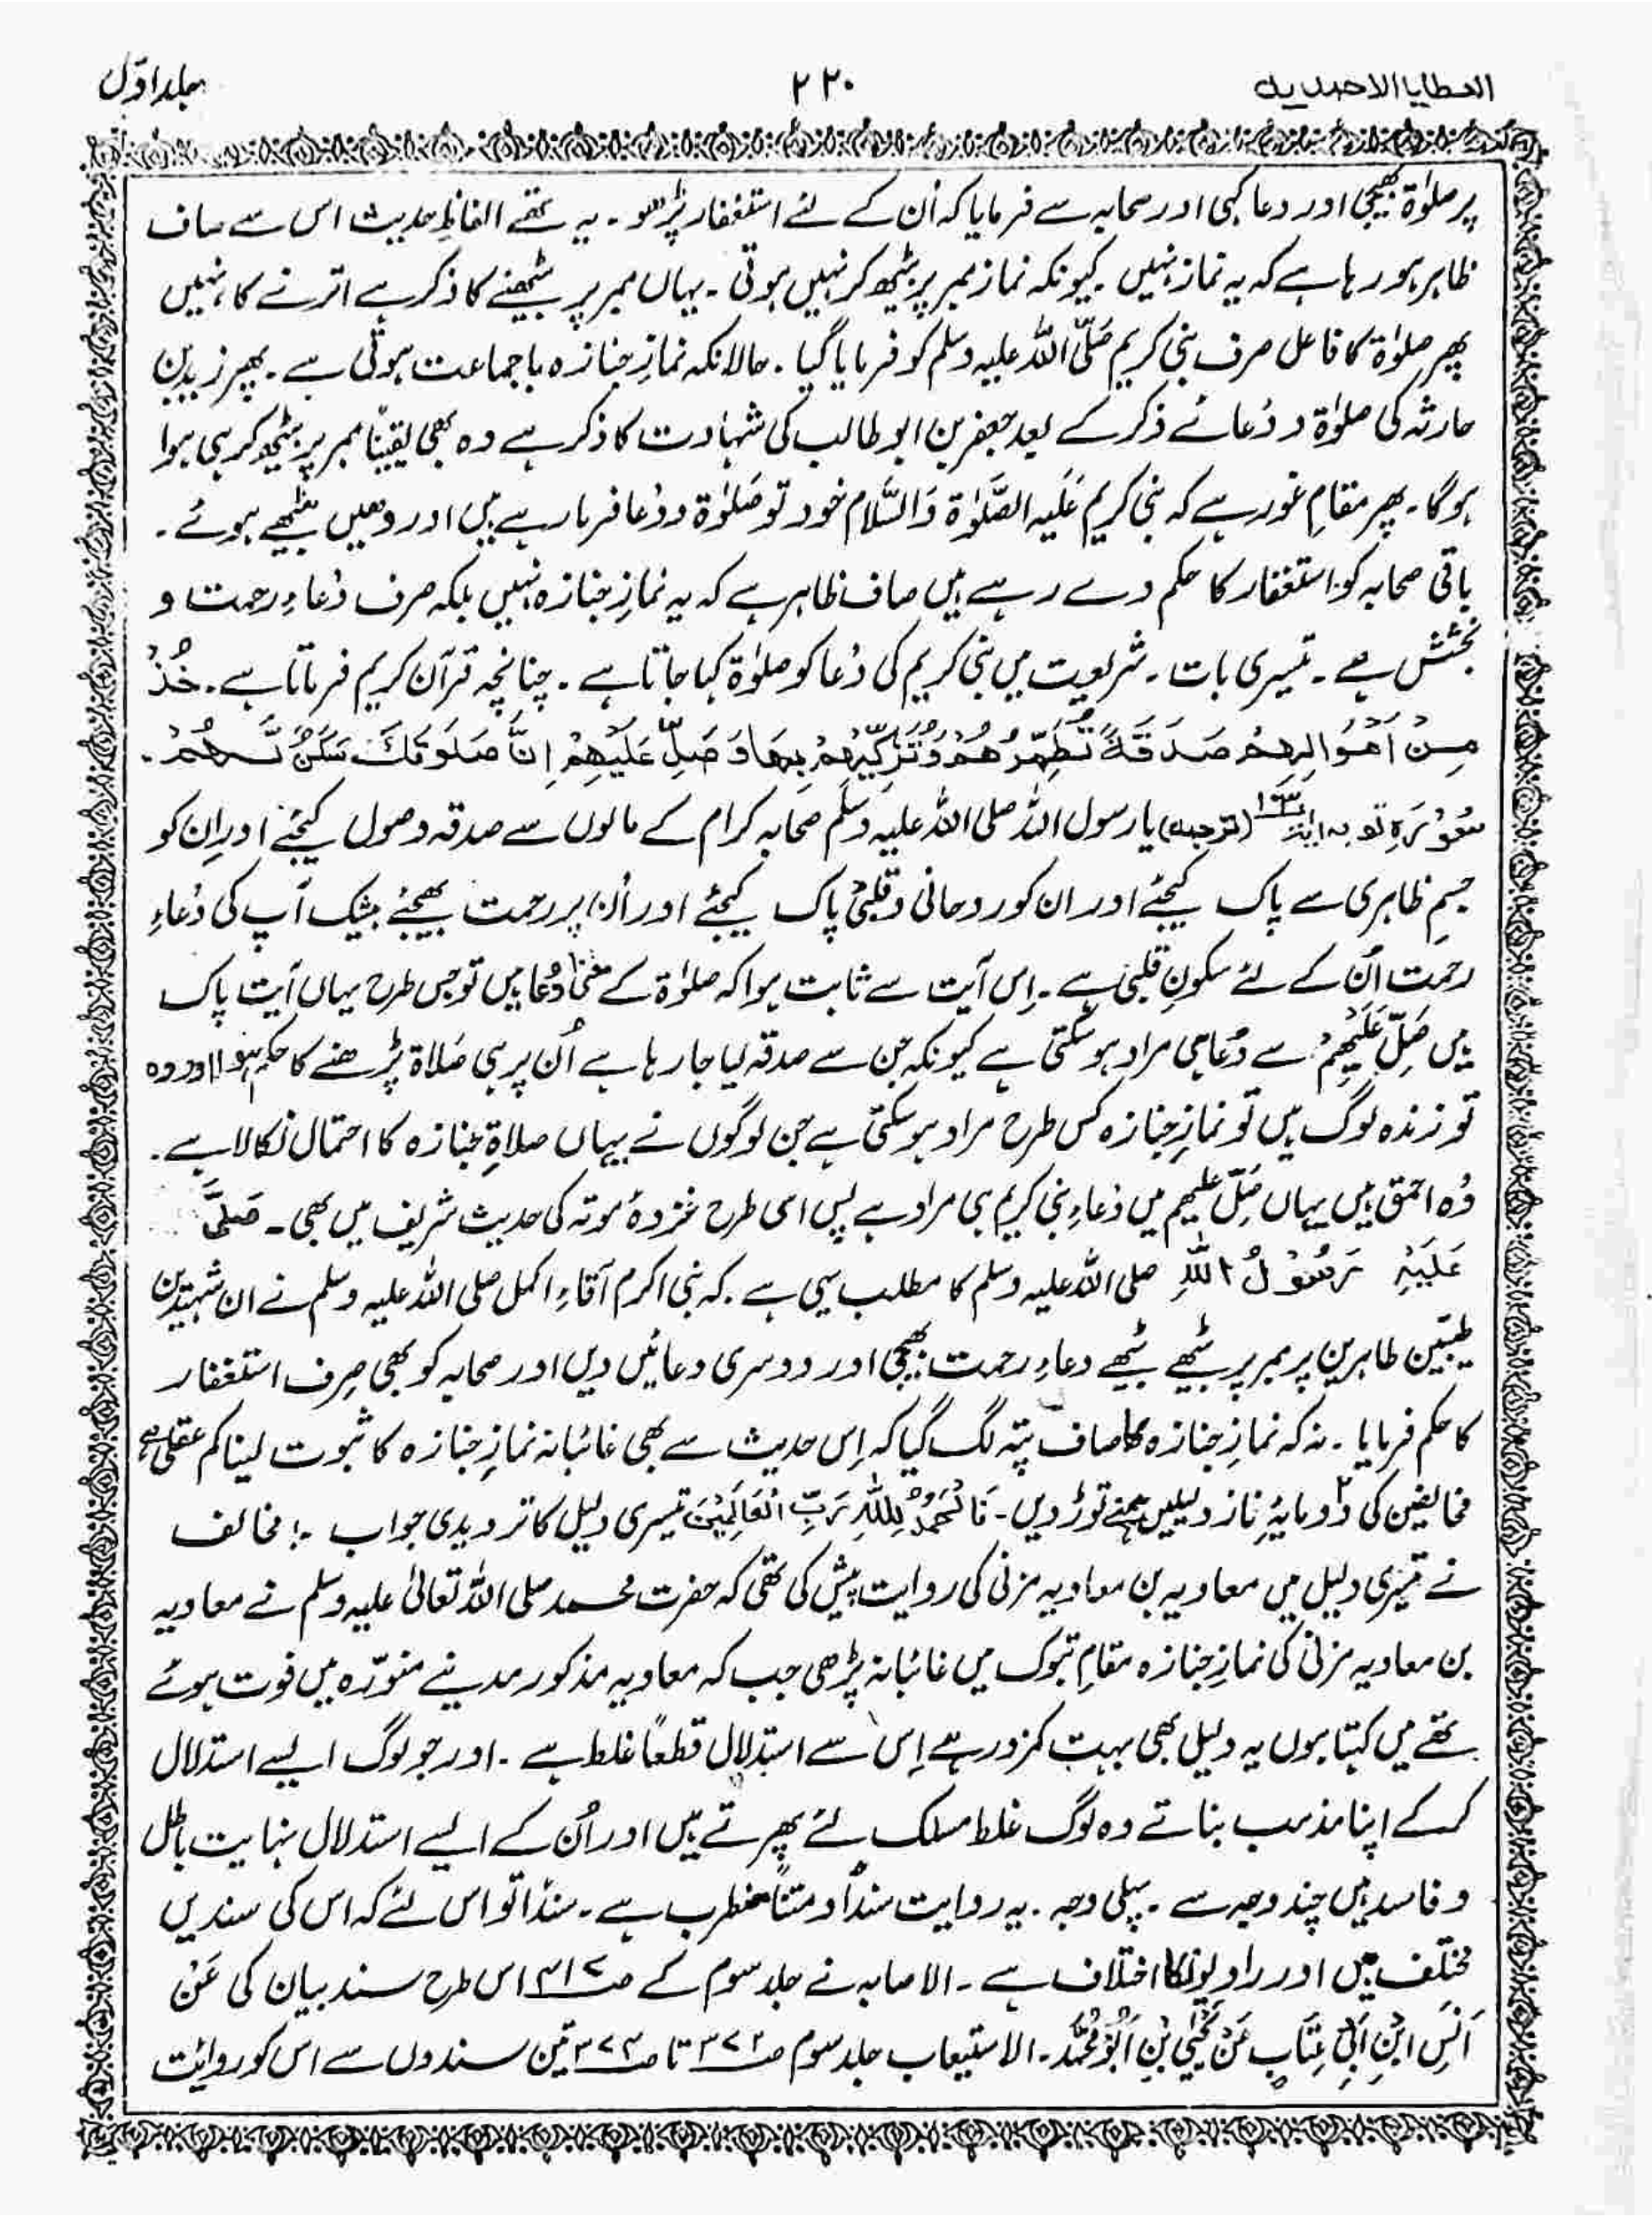 العطایا الاحمدیہ ۲۲۰ جلد اوّل
پر صلوٰۃ بھیجی اور دعا کہی اور صحابہ سے فرمایا کہ اُن کے لئے استغفار پڑھو۔ یہ تھے الفاظِ حدیث اس سے صاف
ظاہر ہو رہا ہے کہ یہ نماز نہیں۔ کیونکہ نماز ممبر پر بیٹھ کر نہیں ہوتی۔ یہاں ممبر پر بیٹھنے کا ذکر ہے اترنے کا نہیں
پھر صلوٰۃ کا فاعل صرف نبی کریم صَلَّی اللہ علیہ وسلم کو فرمایا گیا۔ حالانکہ نمازِ جنازہ باجماعت ہوتی ہے۔ پھر زید بن
حارثہ کی صلوٰۃ و دُعائے ذکر کے بعد جعفر بن ابو طالب کی شہادت کا ذکر ہے وہ بھی یقیناً ممبر پر بیٹھ کر ہی ہوا
ہوگا۔ پھر مقامِ غور ہے کہ نبی کریم عَلَیہ الصَّلوٰۃ وَالسَّلَام خود تو صَلوٰۃ و دُعا فرما رہے ہیں اور وہیں بیٹھے ہوئے۔
باقی صحابہ کو استغفار کا حکم دے رہے ہیں صاف ظاہر ہے کہ یہ نمازِ جنازہ نہیں بلکہ صرف دُعاءِ رحمت و
بخشش ہے۔ تیسری بات۔ شریعت میں نبی کریم کی دُعا کو صلوٰۃ کہا جاتا ہے۔ چنانچہ قرآن کریم فرماتا ہے۔ خُذْ
مِنْ اَمْوَالِهِمْ صَدَقَةً تُطَهِّرُهُمْ وَتُزَكِّيْهِمْ بِهَا وَصَلِّ عَلَيْهِمْ اِنَّ صَلَوٰتَكَ سَكَنٌ لَّهُمْ۔
سُوْرَۃِ توبہ اٰیت ۱۰۳ (ترجمہ) یا رسول اللہ صلی اللہ علیہ وسلم صحابہ کرام کے مالوں سے صدقہ وصول کیجئے اور اِن کو
جسمِ ظاہری سے پاک کیجئے اور ان کو روحانی و قلبی پاک کیجئے اور اُن پر رحمت بھیجئے بیشک آپ کی دُعاءِ
رحمت اُن کے لئے سکونِ قلبی ہے۔ اِس آیت سے ثابت ہوا کہ صلوٰۃ کے معنیٰ دُعا ہیں تو جس طرح یہاں آیت پاک
میں صَلِّ عَلَیْہِمْ سے دُعا ہی مراد ہو سکتی ہے کیونکہ جن سے صدقہ لیا جا رہا ہے اُن پر ہی صَلاۃ پڑھنے کا حکم ہوا اور وہ
تو زندہ لوگ ہیں تو نمازِ جنازہ کس طرح مراد ہو سکتی ہے جن لوگوں نے یہاں صلاۃِ جنازہ کا احتمال نکالا ہے۔
وُہ احمق ہیں یہاں صَلِّ علیہم میں دُعاءِ نبی کریم ہی مراد ہے پس اسی طرح غزوۂ موتہ کی حدیث شریف میں بھی۔ صَلّٰی
عَلَیْہِ رَسُوْلُ اللہِ صلی اللہ علیہ وسلم کا مطلب یہی ہے۔ کہ نبی اکرم آقاءِ اکمل صلی اللہ علیہ وسلم نے ان شہیدین
طیّبین طاہرین پر ممبر پر بیٹھے بیٹھے دعاءِ رحمت بھیجی اور دوسری دعائیں دیں اور صحابہ کو بھی صِرف استغفار
کا حکم فرمایا۔ نہ کہ نمازِ جنازہ کا صاف پتہ لگ گیا کہ اِس حدیث سے بھی غائبانہ نمازِ جنازہ کا ثبوت لینا کم عقلی ہے
مخالفین کی دو مایۂِ ناز دلیلیں ہمنے توڑ دیں۔ فَالْحَمْدُ لِلّٰہِ رَبِّ الْعَالَمِیْنَ تیسری دلیل کا تردیدی جواب ۔: مخالف
نے تیسری دلیل میں معاویہ بن معاویہ مزنی کی روایت پیش کی تھی کہ حضرت محمد صلی اللہ تعالیٰ علیہ وسلم نے معاویہ
بن معاویہ مزنی کی نمازِ جنازہ مقامِ تبوک میں غائبانہ پڑھی جب کہ معاویہ مذکور مدینے منوّرہ میں فوت ہوئے
تھے میں کہتا ہوں یہ دلیل بھی بہت کمزور ہے اِس سے استدلال قطعاً غلط ہے۔ اور جو لوگ ایسے استدلال
کر کے اپنا مذہب بناتے وہ لوگ غلط مسلک لئے پھرتے ہیں اور اُن کے ایسے استدلال نہایت باطل
و فاسد ہیں چند وجہ سے۔ پہلی وجہ۔ یہ روایت سنداً و متناً مضطرب ہے۔ سنداً تو اس لئے کہ اس کی سندیں
مختلف ہیں اور راویوں کا اختلاف ہے۔ الاصابہ نے جلد سوم کے صـ۴۱۷ اس طرح سند بیان کی عَنْ
اَنَسِ ابْنِ اَبِیْ عِتَابٍ عَنْ یَحْییٰ بْنِ اَبُوْ مُحَمَّد۔ الاستیعاب جلد سوم صـ۳۷۲ تا صـ۳۷۳ تین سندوں سے اس کو روائت